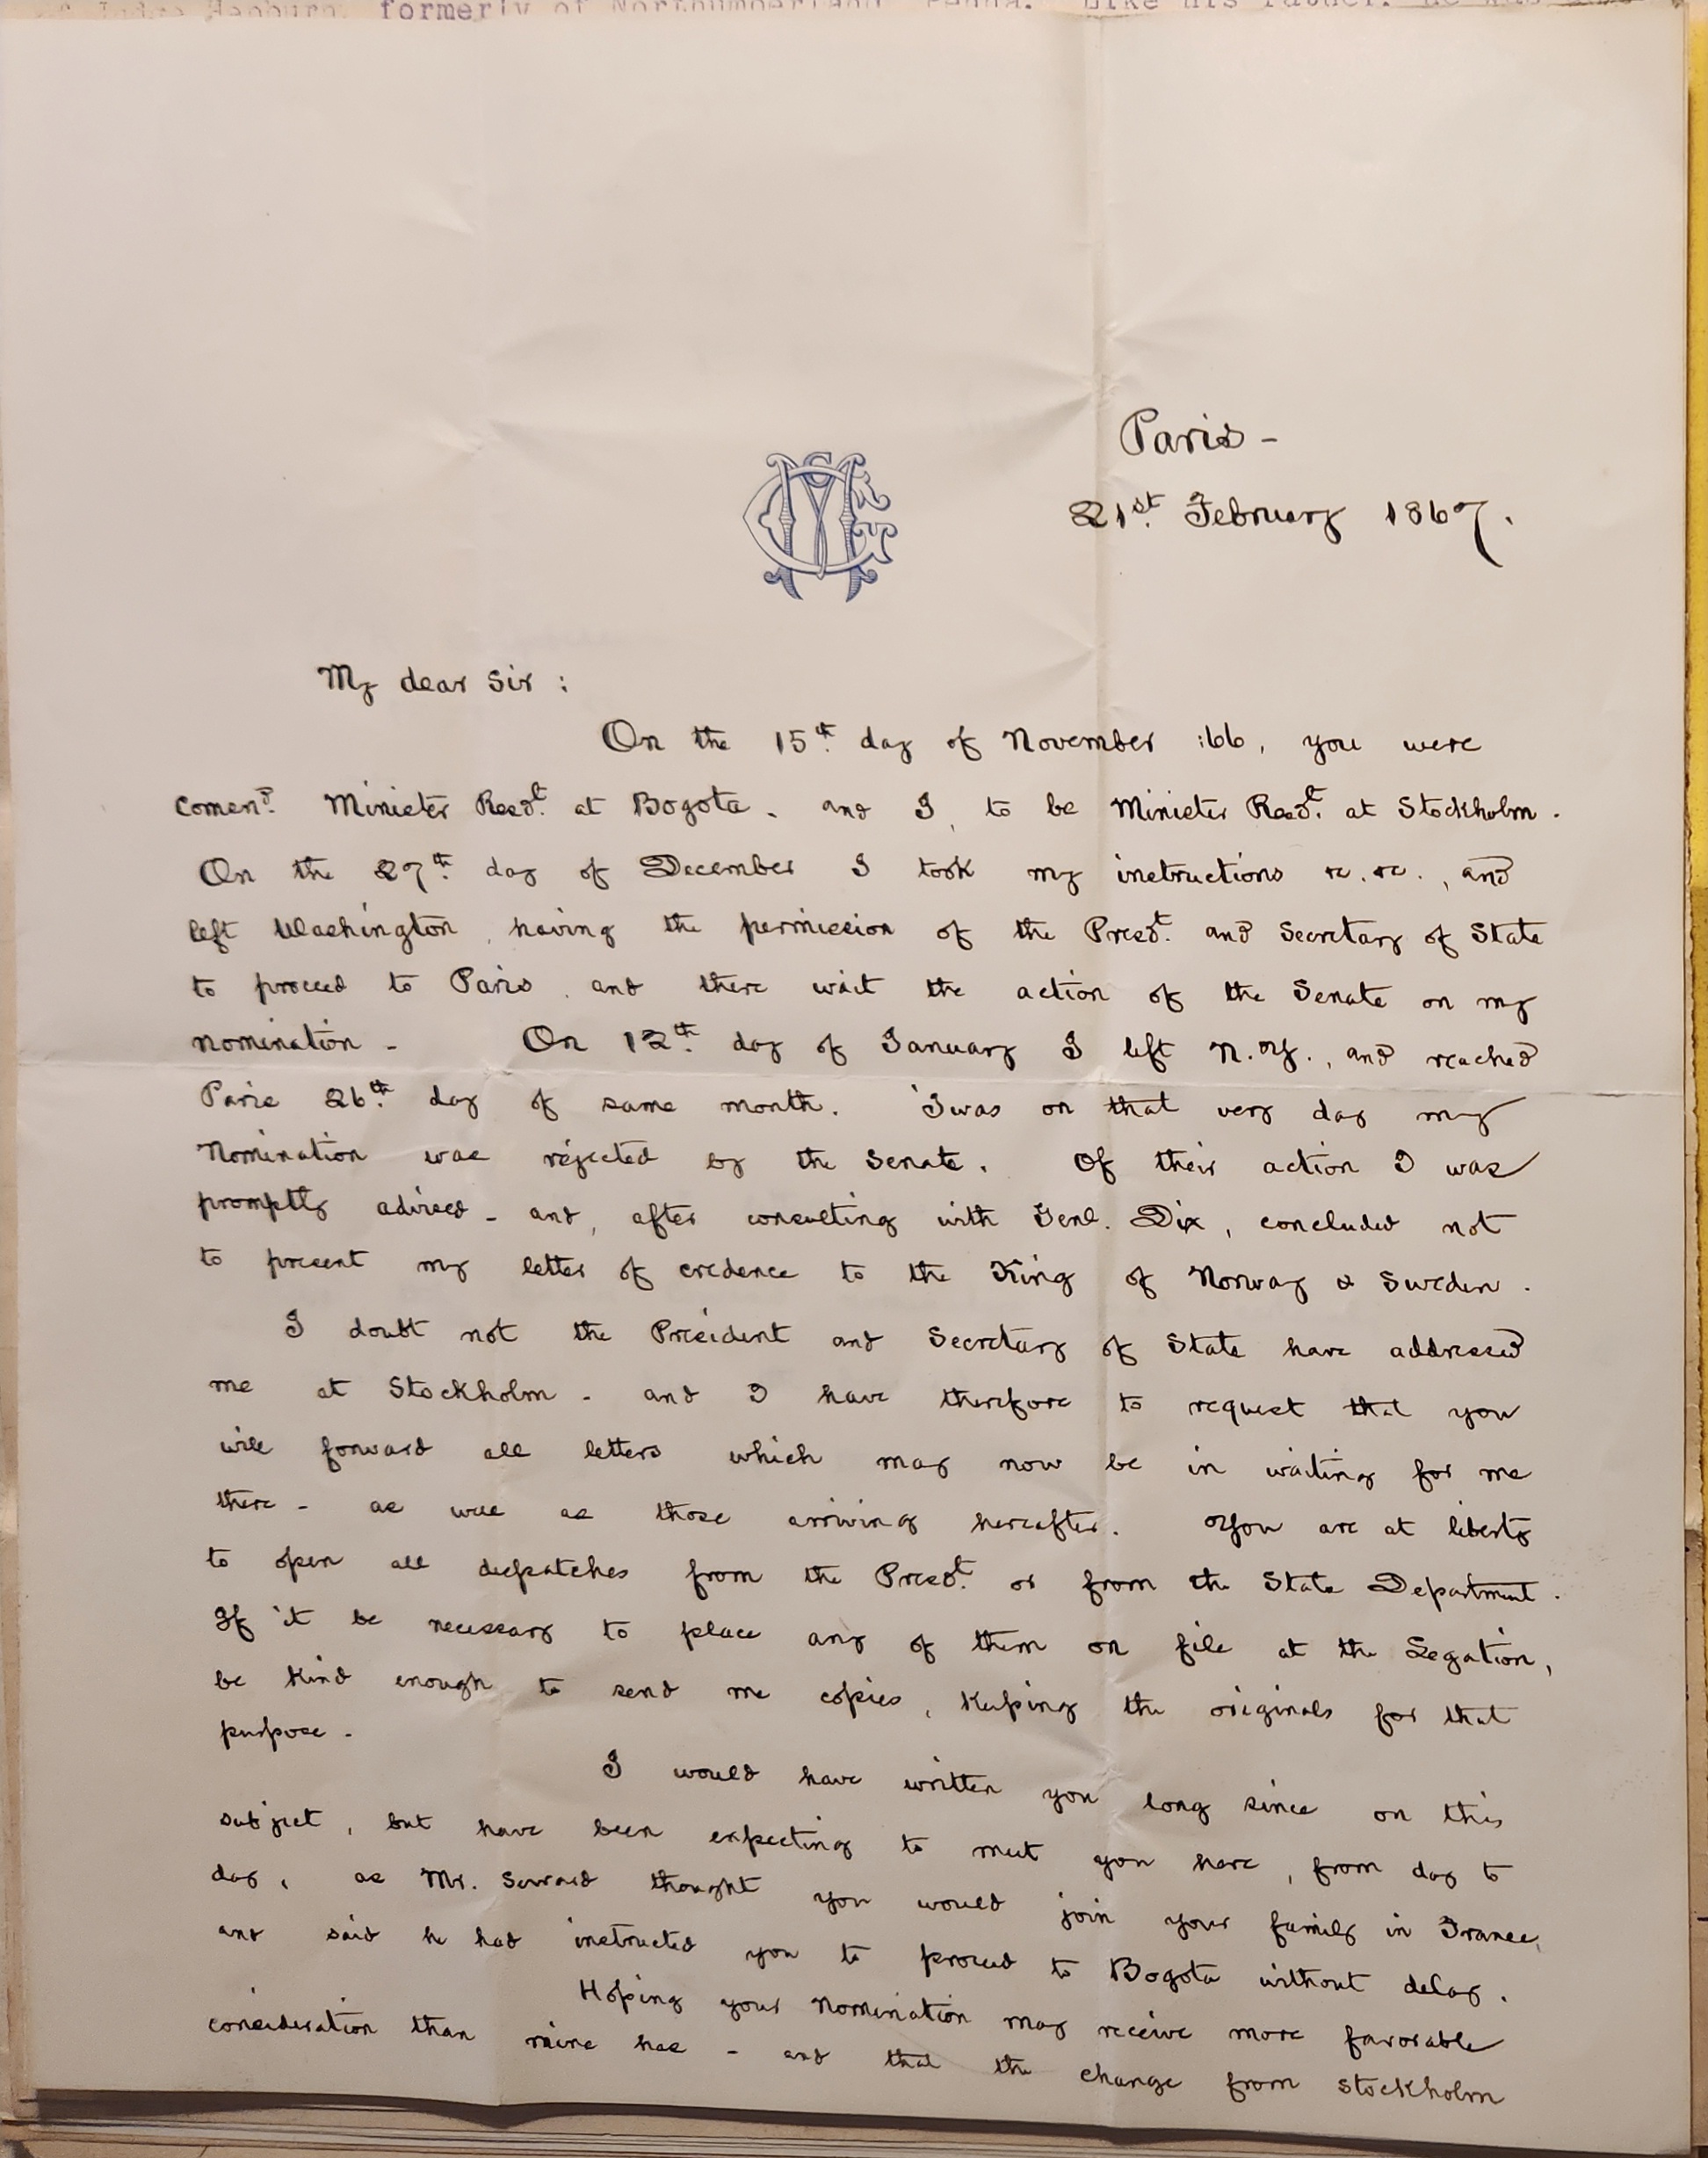 formerly of Northumberland, Penna. Like his father, he was
Paris -
21st. February 1867.
My dear Sir :
On the 15th. day of November :66, you were
Comend. Minister Resdt. at Bogota - and I, to be Minister Resdt. at Stockholm.
On the 27th. day of December I took my instructions &c. &c., and
left Washington, having the permission of the Presdt. and Secretary of State
to proceed to Paris, and there wait the action of the Senate on my
nomination - On 12th. day of January I left N.Y., and reached
Paris 26th. day of same month. 'Twas on that very day my
Nomination was rejected by the Senate. Of their action I was
promptly advised - and, after consulting with Genl. Dix, concluded not
to present my letter of credence to the King of Norway & Sweden.
I doubt not the President and Secretary of State have addressed
me at Stockholm - and I have therefore to request that you
will forward all letters which may now be in waiting for me
there - as well as those arriving hereafter. You are at liberty
to open all dispatches from the Presdt. or from the State Department.
If it be necessary to place any of them on file at the Legation,
be kind enough to send me copies, keeping the originals for that
purpose -
I would have written you long since on this
subject, but have been expecting to meet you here, from day to
day, as Mr. Seward thought you would join your family in France,
and said he had instructed you to proceed to Bogota without delay.
Hoping your nomination may receive more favorable
consideration than mine has - and that the change from Stockholm